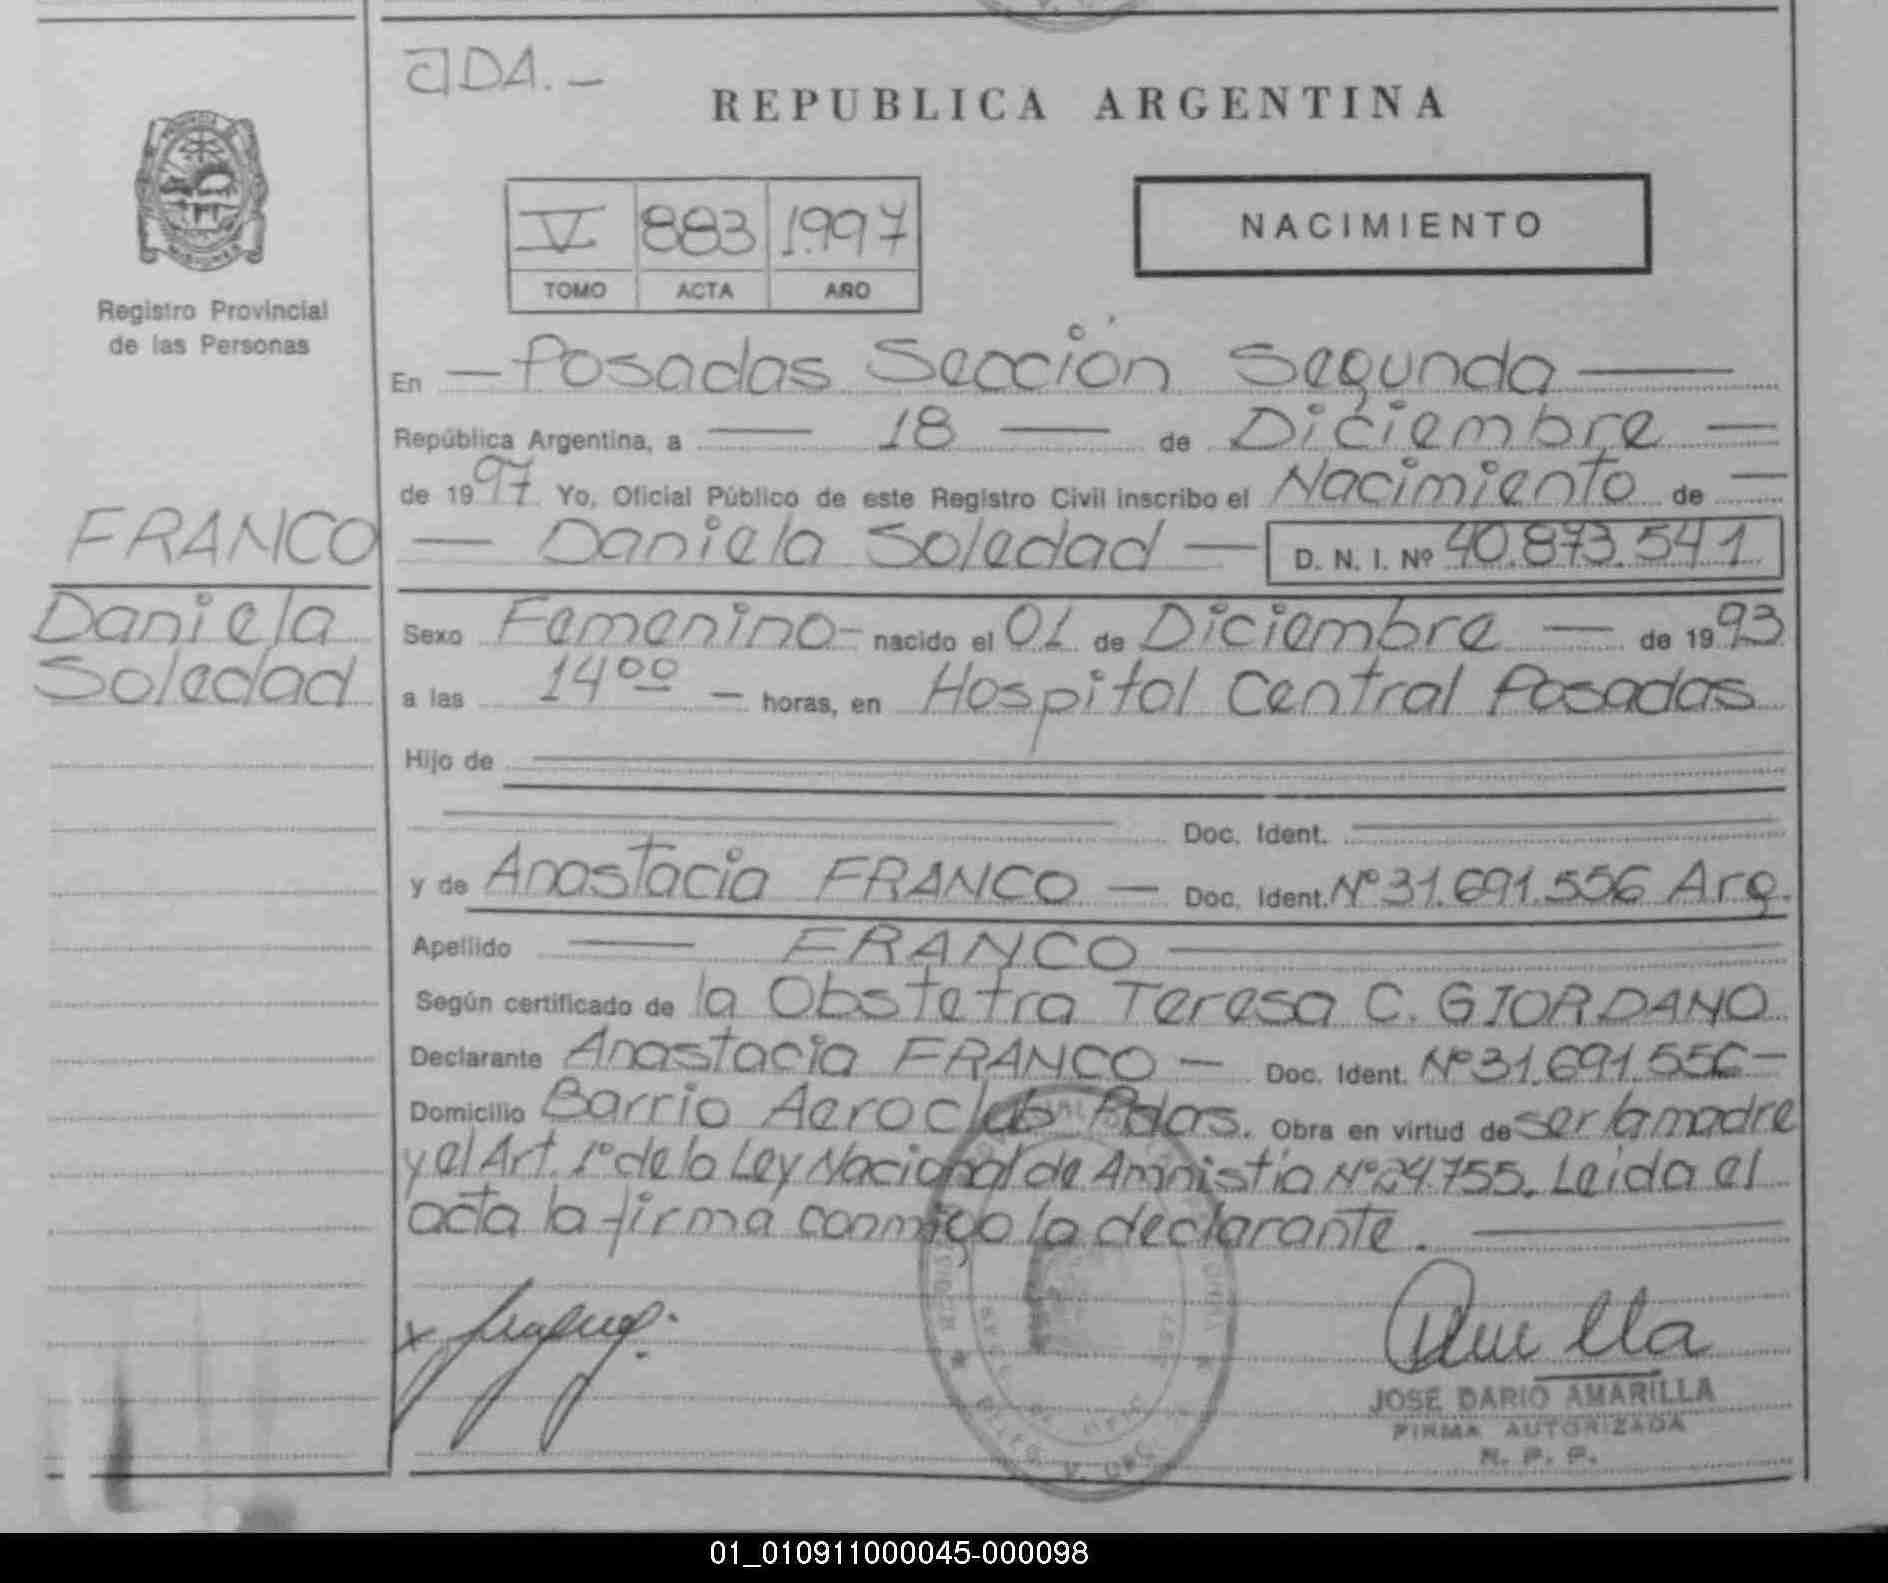 JDA.-
REPUBLICA ARGENTINA
V 883 1997
TOMO ACTA AÑO
NACIMIENTO
Registro Provincial
de las Personas
En — Posadas Sección Segunda —
República Argentina, a — 18 — de Diciembre —
de 1997 Yo, Oficial Público de este Registro Civil inscribo el Nacimiento de —
— Daniela Soledad — D. N. I. Nº 40.873.541
FRANCO
Daniela
Soledad
Sexo Femenino - nacido el 01 de Diciembre — de 1993
a las 14ºº — horas, en Hospital Central Posadas
Hijo de
Doc. Ident.
y de Anastacia FRANCO — Doc. Ident. Nº 31.691.556 Arg.
Apellido — FRANCO —
Según certificado de la Obstetra Teresa C. GIORDANO
Declarante Anastacia FRANCO — Doc. Ident. Nº 31.691.556 —
Domicilio Barrio Aeroclub Pdas. Obra en virtud de ser la madre
y el Art. 1º de la Ley Nacional de Amnistía Nº 24.755. Leida el
acta la firma conmigo la declarante. —
JOSE DARIO AMARILLA
FIRMA AUTORIZADA
R. P. P.
01_010911000045-000098